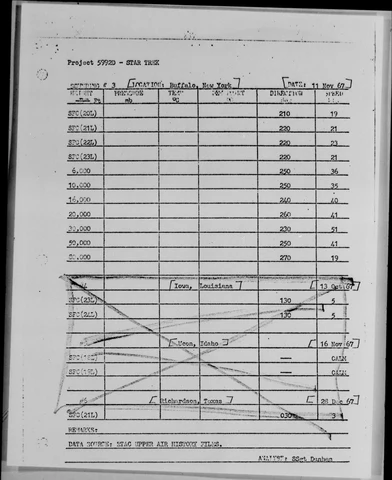 Project 5992D - STAR TREK
SOUNDING # 3 [LOCATION: Buffalo, New York] [DATE: 11 Nov 67]
HEIGHT PRESSURE TEMP DEW POINT DIRECTION SPEED
Ft mb °C °C
SFC(20L) 210 19
SFC(21L) 220 21
SFC(22L) 220 23
SFC(23L) 220 21
6,000 250 36
10,000 250 35
16,000 240 40
20,000 260 41
30,000 230 51
50,000 250 41
270 19
[Iowa, Louisiana] [13 Oct 67]
SFC(23L) 130 5
SFC(24L) 130 5
Idaho] [16 Nov 67]
— CALM
— CALM
#6 [Richardson, Texas] [28 Dec 67]
SFC(21L) 030 3
REMARKS:
DATA SOURCE: ETAC UPPER AIR HISTORY FILES.
ANALYST: SSgt Dunham